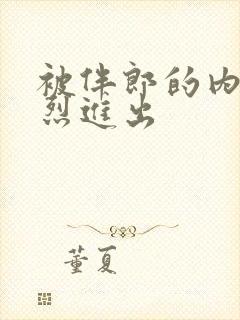 被伴郎的内
烈进出
董夏